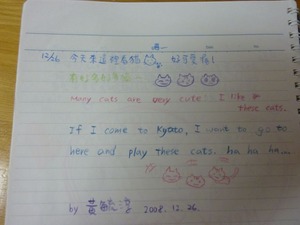 12/26 今天來這裡看貓 好可愛喔!
Many cats are very cute. I like
these cats.
If I come to Kyoto, I must to go to
here and play these cats. ha ha ha...
by 黃 2008.12.26.